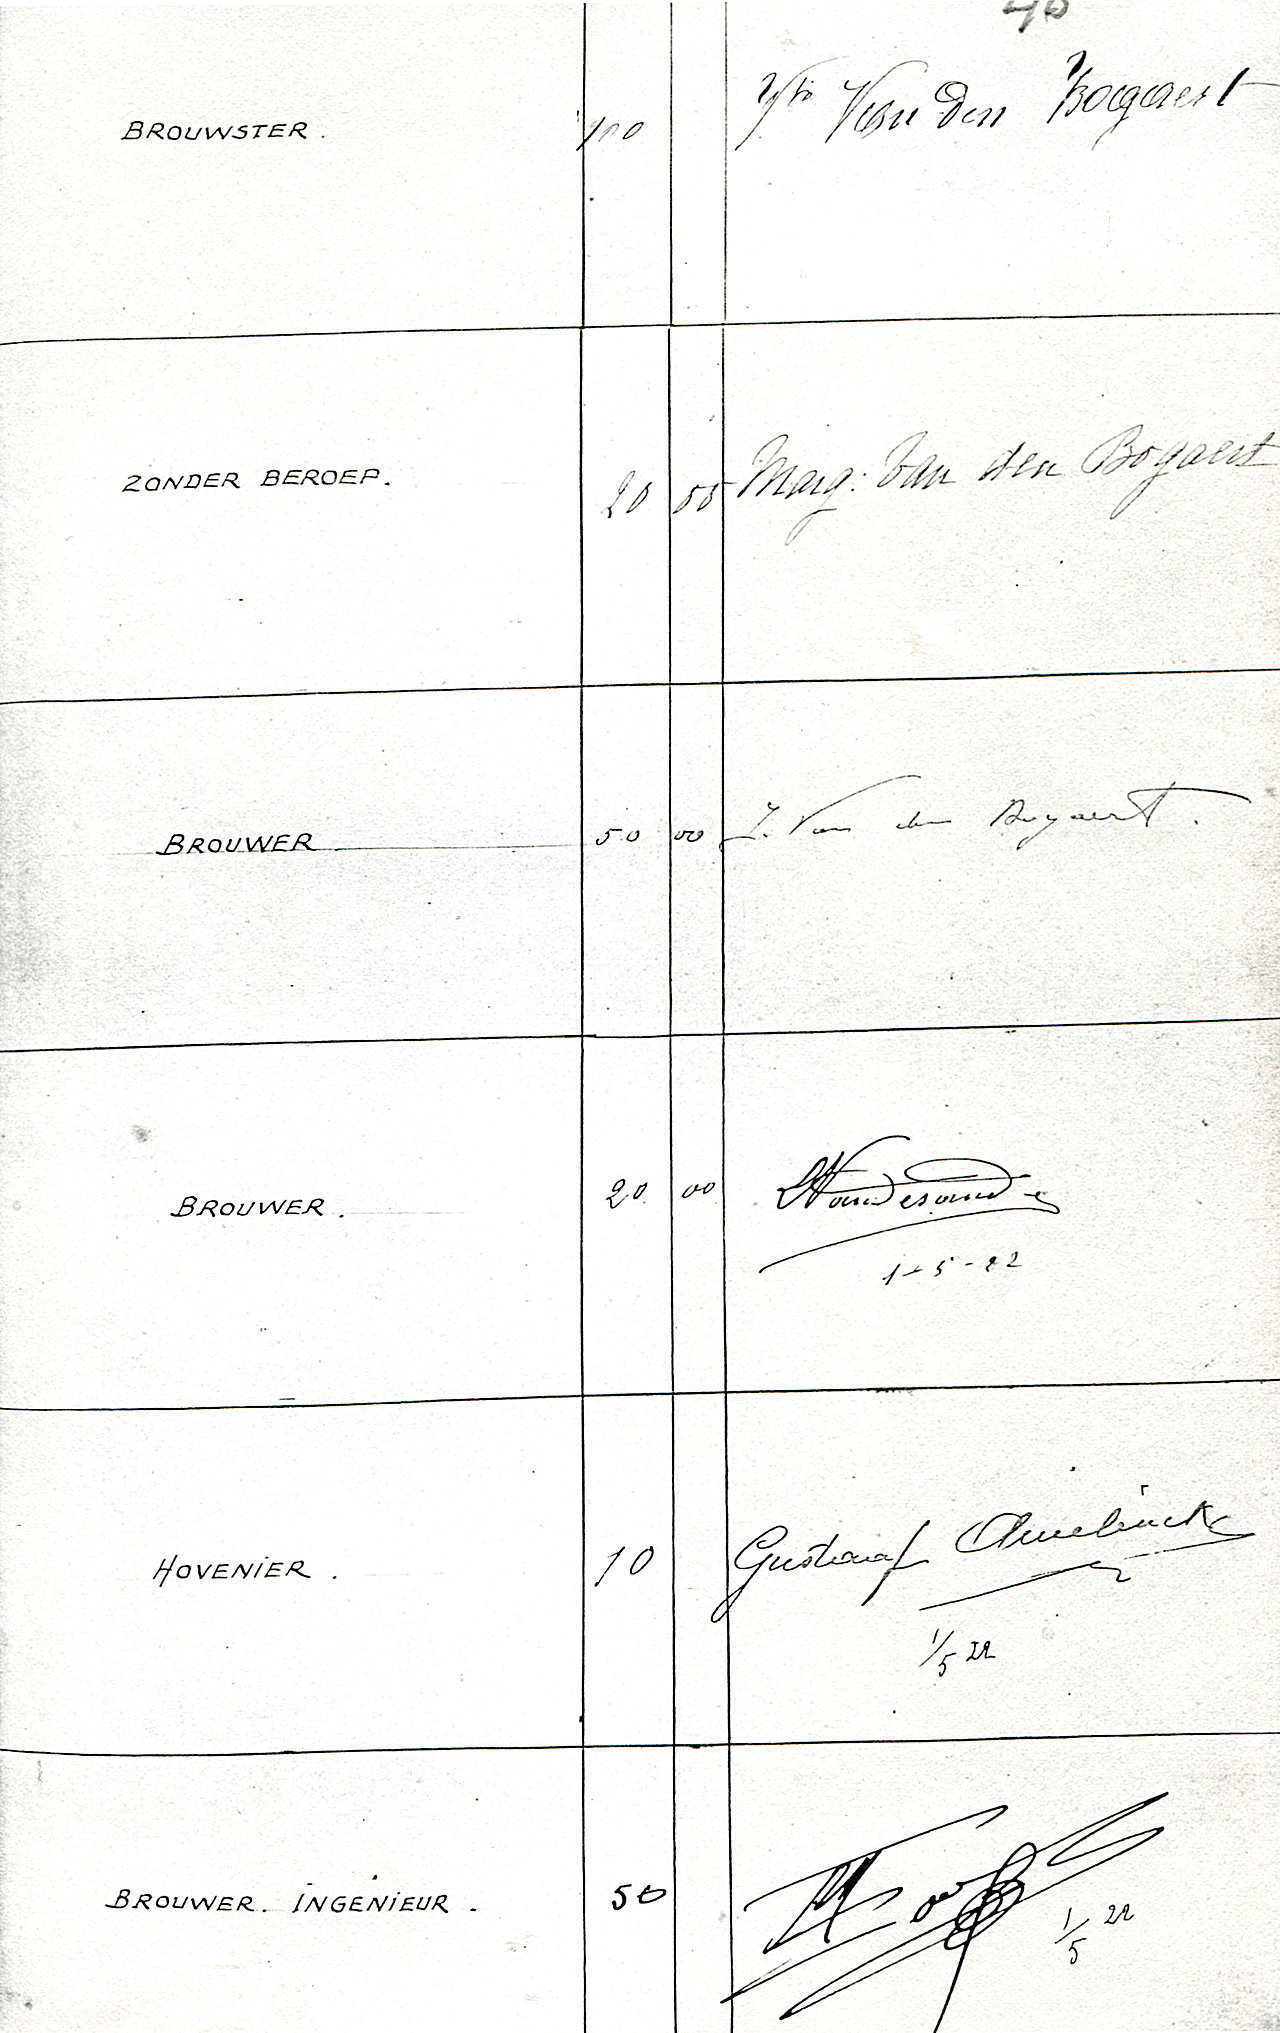 40
BROUWSTER. 100 Van Den Bogaert
ZONDER BEROEP. 20 00 Marg: Van den Bogaert
BROUWER 50 00 J. Van den Bogaert.
BROUWER. 20 00 Vandesande
1-5-22
HOVENIER. 10 Gustaaf
1/5 22
BROUWER. INGENIEUR. 50
1/5 22